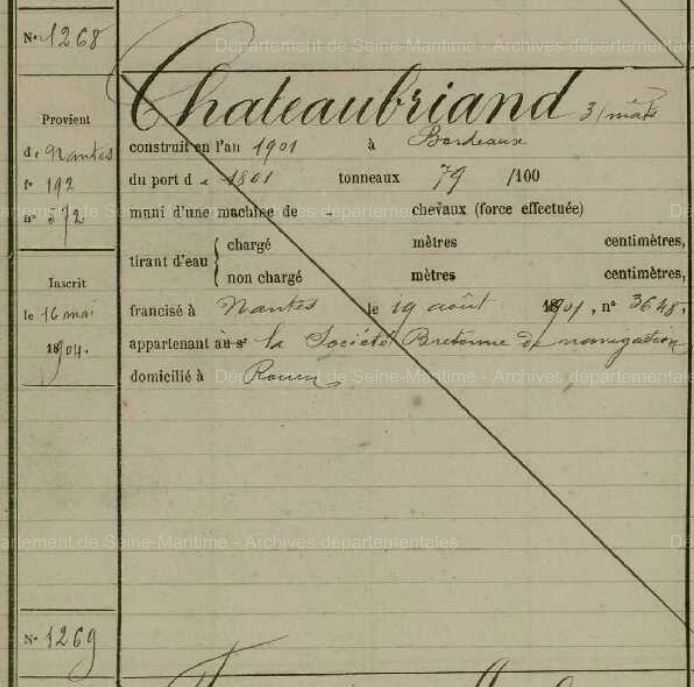 N° 1268
Chateaubriand 3/mâts
Provient
de Nantes
f° 192
n° 572
construit en l'an 1901 à Bordeaux
du port de 1801 tonneaux 79 /100
muni d'une machine de - chevaux (force effectuée)
tirant d'eau { chargé mètres centimètres,
non chargé mètres centimètres,
Inscrit
le 16 mai
1904.
francisé à Nantes le 19 août 1901, n° 3648.
appartenant au sr la Société Bretonne de navigation
domicilié à Rouen
N° 1269
Département de Seine-Maritime - Archives départementales
Département de Seine-Maritime - Archives départementales
Département de Seine-Maritime - Archives départementales